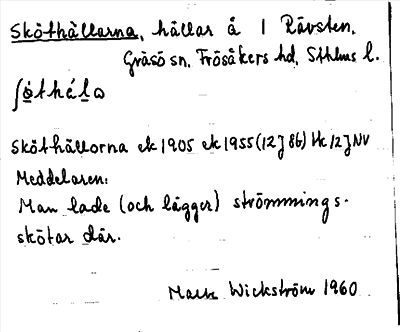 Sköthällarna, hällar å 1 Rävsten,
Gräsö sn, Frösåkers hd, Sthlms l.
ʃö̀thɛ́la
Sköthällorna ek 1905 ek 1955 (12J8b) Hk 12J NV
Meddelaren:
Man lade (och lägger) strömmings-
skötar där.
Wickström 1960